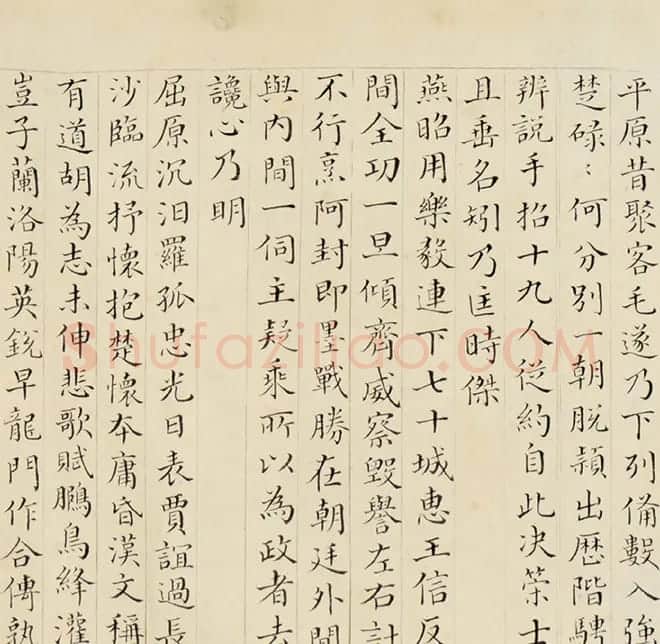 平原昔聚客毛遂乃下列備數入強
楚碌〻何分別一朝脫穎出歷階騁
辨説手招十九人從約自此決策士
且垂名矧乃匡時傑
燕昭用樂毅連下七十城惠王信反
間全功一旦傾齊威察毀譽左右計
不行烹阿封即墨戰勝在朝廷外間
與内間一伺主疑乘所以為政者去
讒心乃明
屈原沉汨羅孤忠光日表賈誼過長
沙臨流抒懷抱楚懷本庸昏漢文稱
有道胡為志未伸悲歌賦鵩鳥絳灌
豈子蘭洛陽英鋭早龍門作合傳孰
Shufaziliao.COM